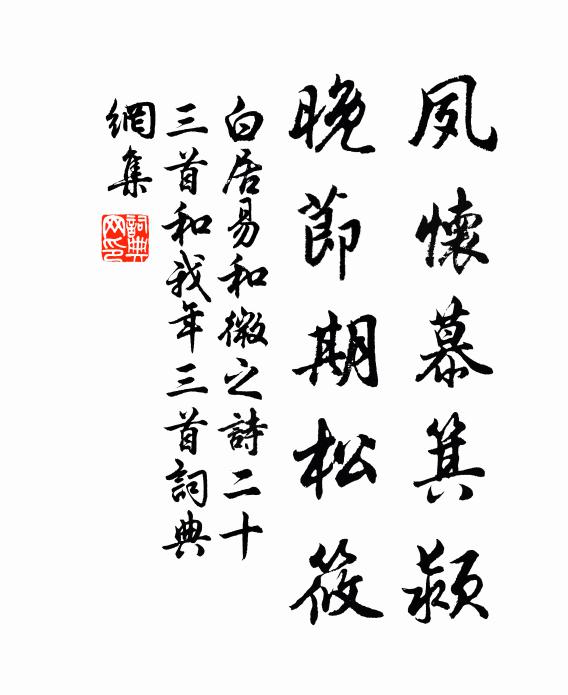 夙懷慕箕颍
晚節期松筱
白居易和微之詩二十
三首和我年三首詞典
網集
詞典
网印